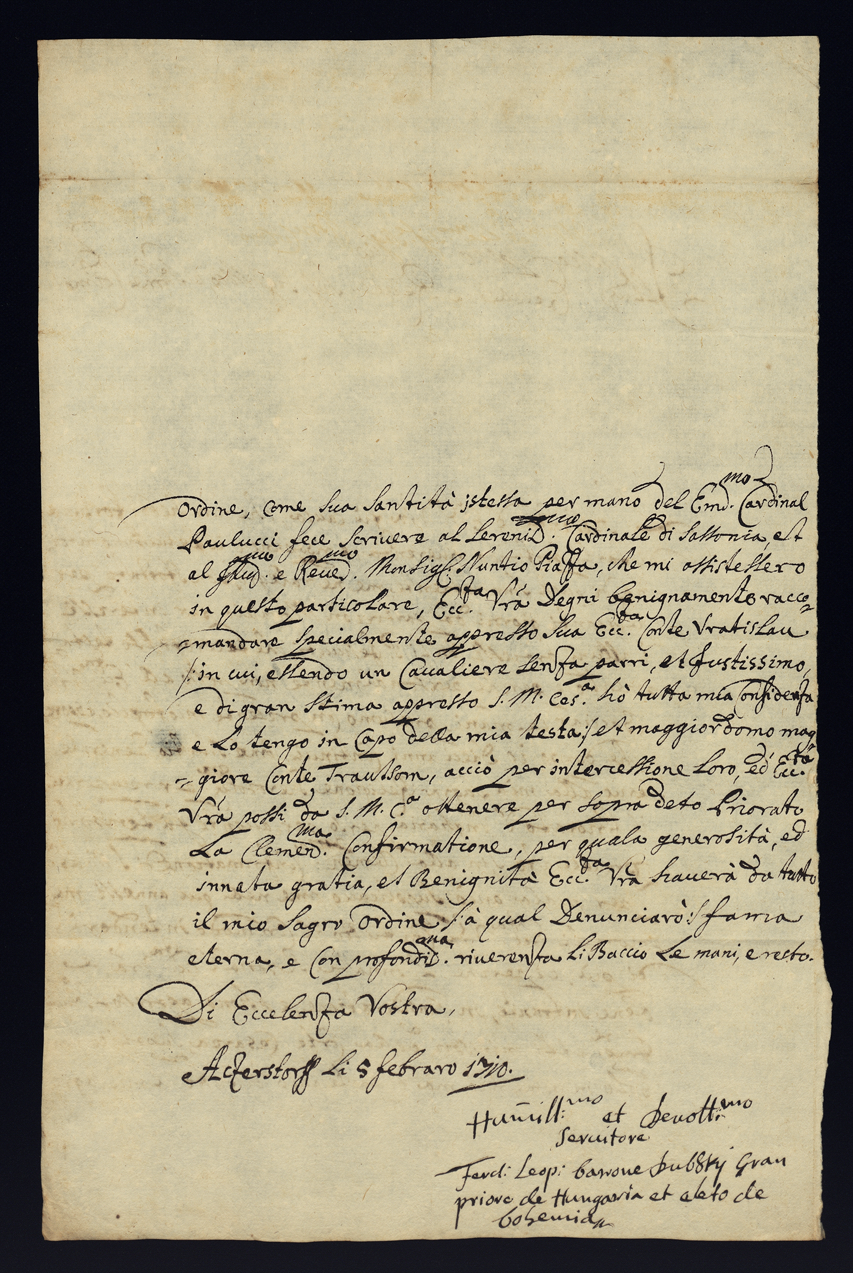 ordine, come sua Santità istessa per mano del Emd.mo Cardinal
Paulucci fece scrivere al Serenid.mo Cardinale di Sassonia, et
al e Reved.mo Monsig.r Nuntio Piazza, che mi assistessero
in questo particolare, Ecc.ta Vrã Degni benignamente racco=
=mandare specialmente appresso sua Ecc.da Conte Vratislau
/:in cui, essendo un Cavaliere senza parri, et Justissimo,
e di gran stima appresso S. M. Ces.a hò tutta mia Confidenza
e Lo tengo in Capo della mia testa:/ et maggiordomo mag=
=giore Conte Trautsom, acciò per intercessione Loro, ed Ecc.ta
Vrã possi da S. M. C.a ottenere per sopra deto Priorato
La Clemend.ma Confirmatione, per quala generosità, ed
innata gratia, et Benignità Ecc.da Vrã haverà da tutto
il mio Sagro Ordine /:à qual Denunciarò:/ fama
eterna, e Con profondid.ma riverenza Li Baccio Le mani, e resto.
Di Eccelenza Vostra,
Li 5 febraro 1710.
Humill:mo et Devott:mo
Servitore
Ferd: Leop: barrone Dubsky Gran
priore de Hungaria et eleto de
bohemia